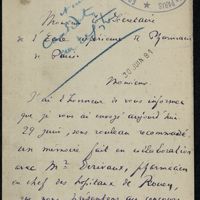 Monsieur le Secrétaire
de l'Ecole supérieure de Pharmacie
de Paris.
30 JUIN 91
Monsieur
J'ai l'honneur de vous informer
que je vous ai envoyé aujourd'hui
29 juin, sous rouleau recommandé
un mémoire fait en collaboration
avec Mr Derivaux, pharmacien
en chef des hôpitaux de Rouen,